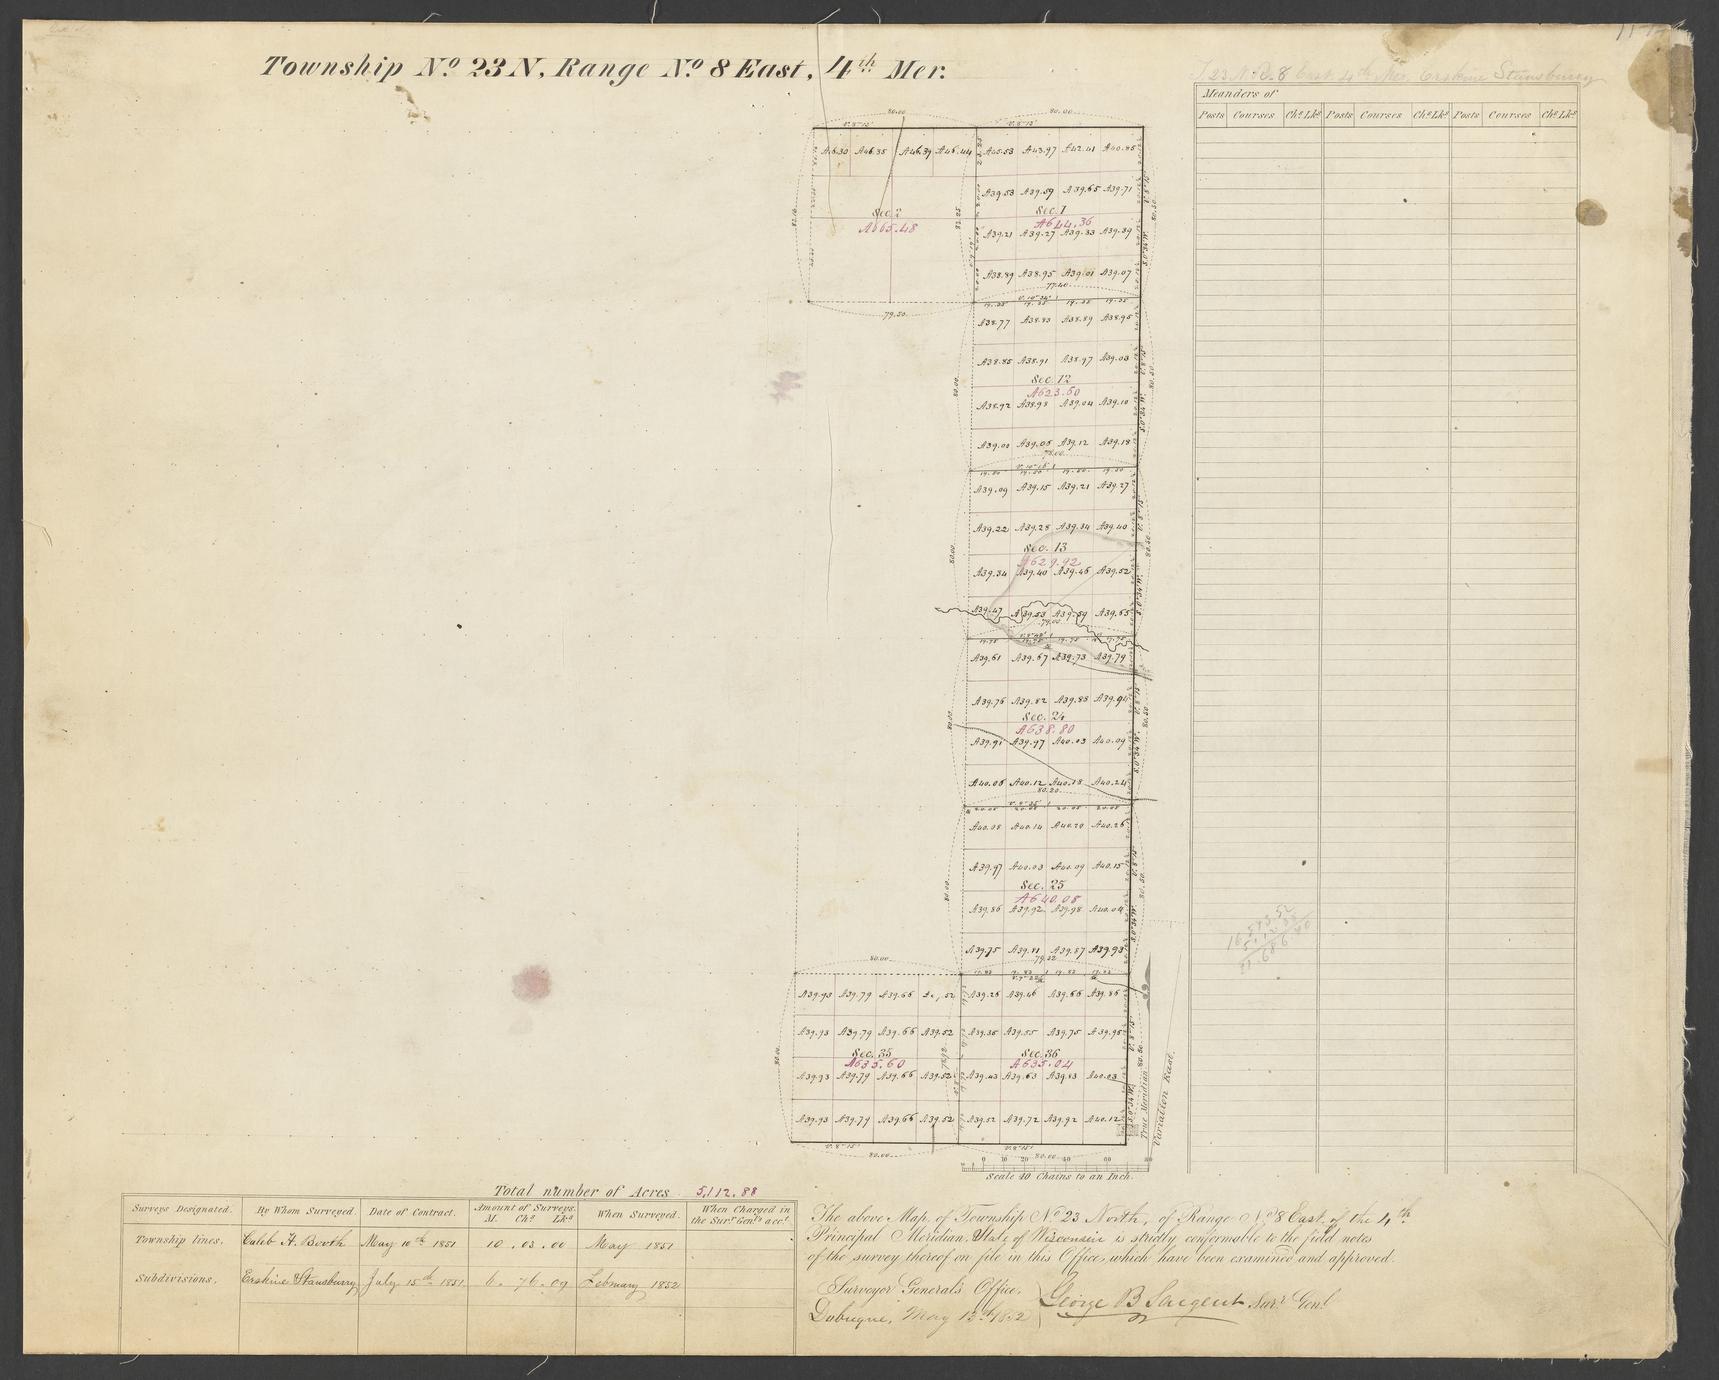 Township No. 23 N, Range No. 8 East, 4th Mer.
T 23 N R. 8 East 4th Mer. Erskine Stansburry
Meanders of
Posts Courses Chs Lks Posts Courses Chs Lks Posts Courses Chs Lks
80.00 80.00
A46.30 A46.35 A46.39 A46.44 A45.53 A43.97 A42.41 A40.85
A39.53 A39.59 A39.65 A39.71
Sec. 2 Sec. 1
A665.48 A644.36
A39.21 A39.27 A39.33 A39.39
A38.89 A38.95 A39.01 A39.07
77.40
79.50
A38.77 A38.83 A38.89 A38.95
A38.85 A38.91 A38.97 A39.03
Sec. 12
A623.60
A38.92 A38.98 A39.04 A39.10
A39.00 A39.06 A39.12 A39.18
78.00
A39.09 A39.15 A39.21 A39.27
A39.22 A39.28 A39.34 A39.40
Sec. 13
A629.92
A39.34 A39.40 A39.46 A39.52
A39.47 A39.53 A39.59 A39.65
79.00
A39.61 A39.67 A39.73 A39.79
A39.76 A39.82 A39.88 A39.94
Sec. 24
A638.80
A39.91 A39.97 A40.03 A40.09
A40.06 A40.12 A40.18 A40.24
80.20
A40.08 A40.14 A40.20 A40.26
A39.97 A40.03 A40.09 A40.15
Sec. 25
A640.08
A39.86 A39.92 A39.98 A40.04
A39.75 A39.81 A39.87 A39.93
80.00 79.32
A39.93 A39.79 A39.66 A39.26 A39.46 A39.66 A39.86
A39.93 A39.79 A39.66 A39.52 A39.35 A39.55 A39.75 A39.95
Sec. 35 Sec. 36
A635.60 A635.04
A39.93 A39.79 A39.66 A39.52 A39.43 A39.63 A39.83 A40.03
A39.93 A39.79 A39.66 A39.52 A39.52 A39.72 A39.92 A40.12
80.00 80.00
True Meridian
Variation East.
Scale 40 Chains to an Inch.
Total number of Acres 5,112.88
Surveys Designated. By Whom Surveyed. Date of Contract. Amount of Surveys. M. Chs Lks When Surveyed. When Charged in the Surr Genls acct
Township lines. Caleb H. Booth May 10th 1851 10 . 03 . 00 May 1851
Subdivisions. Erskine Stansburry July 15th 1851. 6. 76.09 February 1852
The above Map, of Township No. 23 North, of Range No. 8 East, of the 4th
Principal Meridian, State of Wisconsin is strictly conformable to the field notes
of the survey thereof on file in this Office, which have been examined and approved.
Surveyor General's Office,
Dubuque, May 13th 1852
George B Sargent Surr Genl